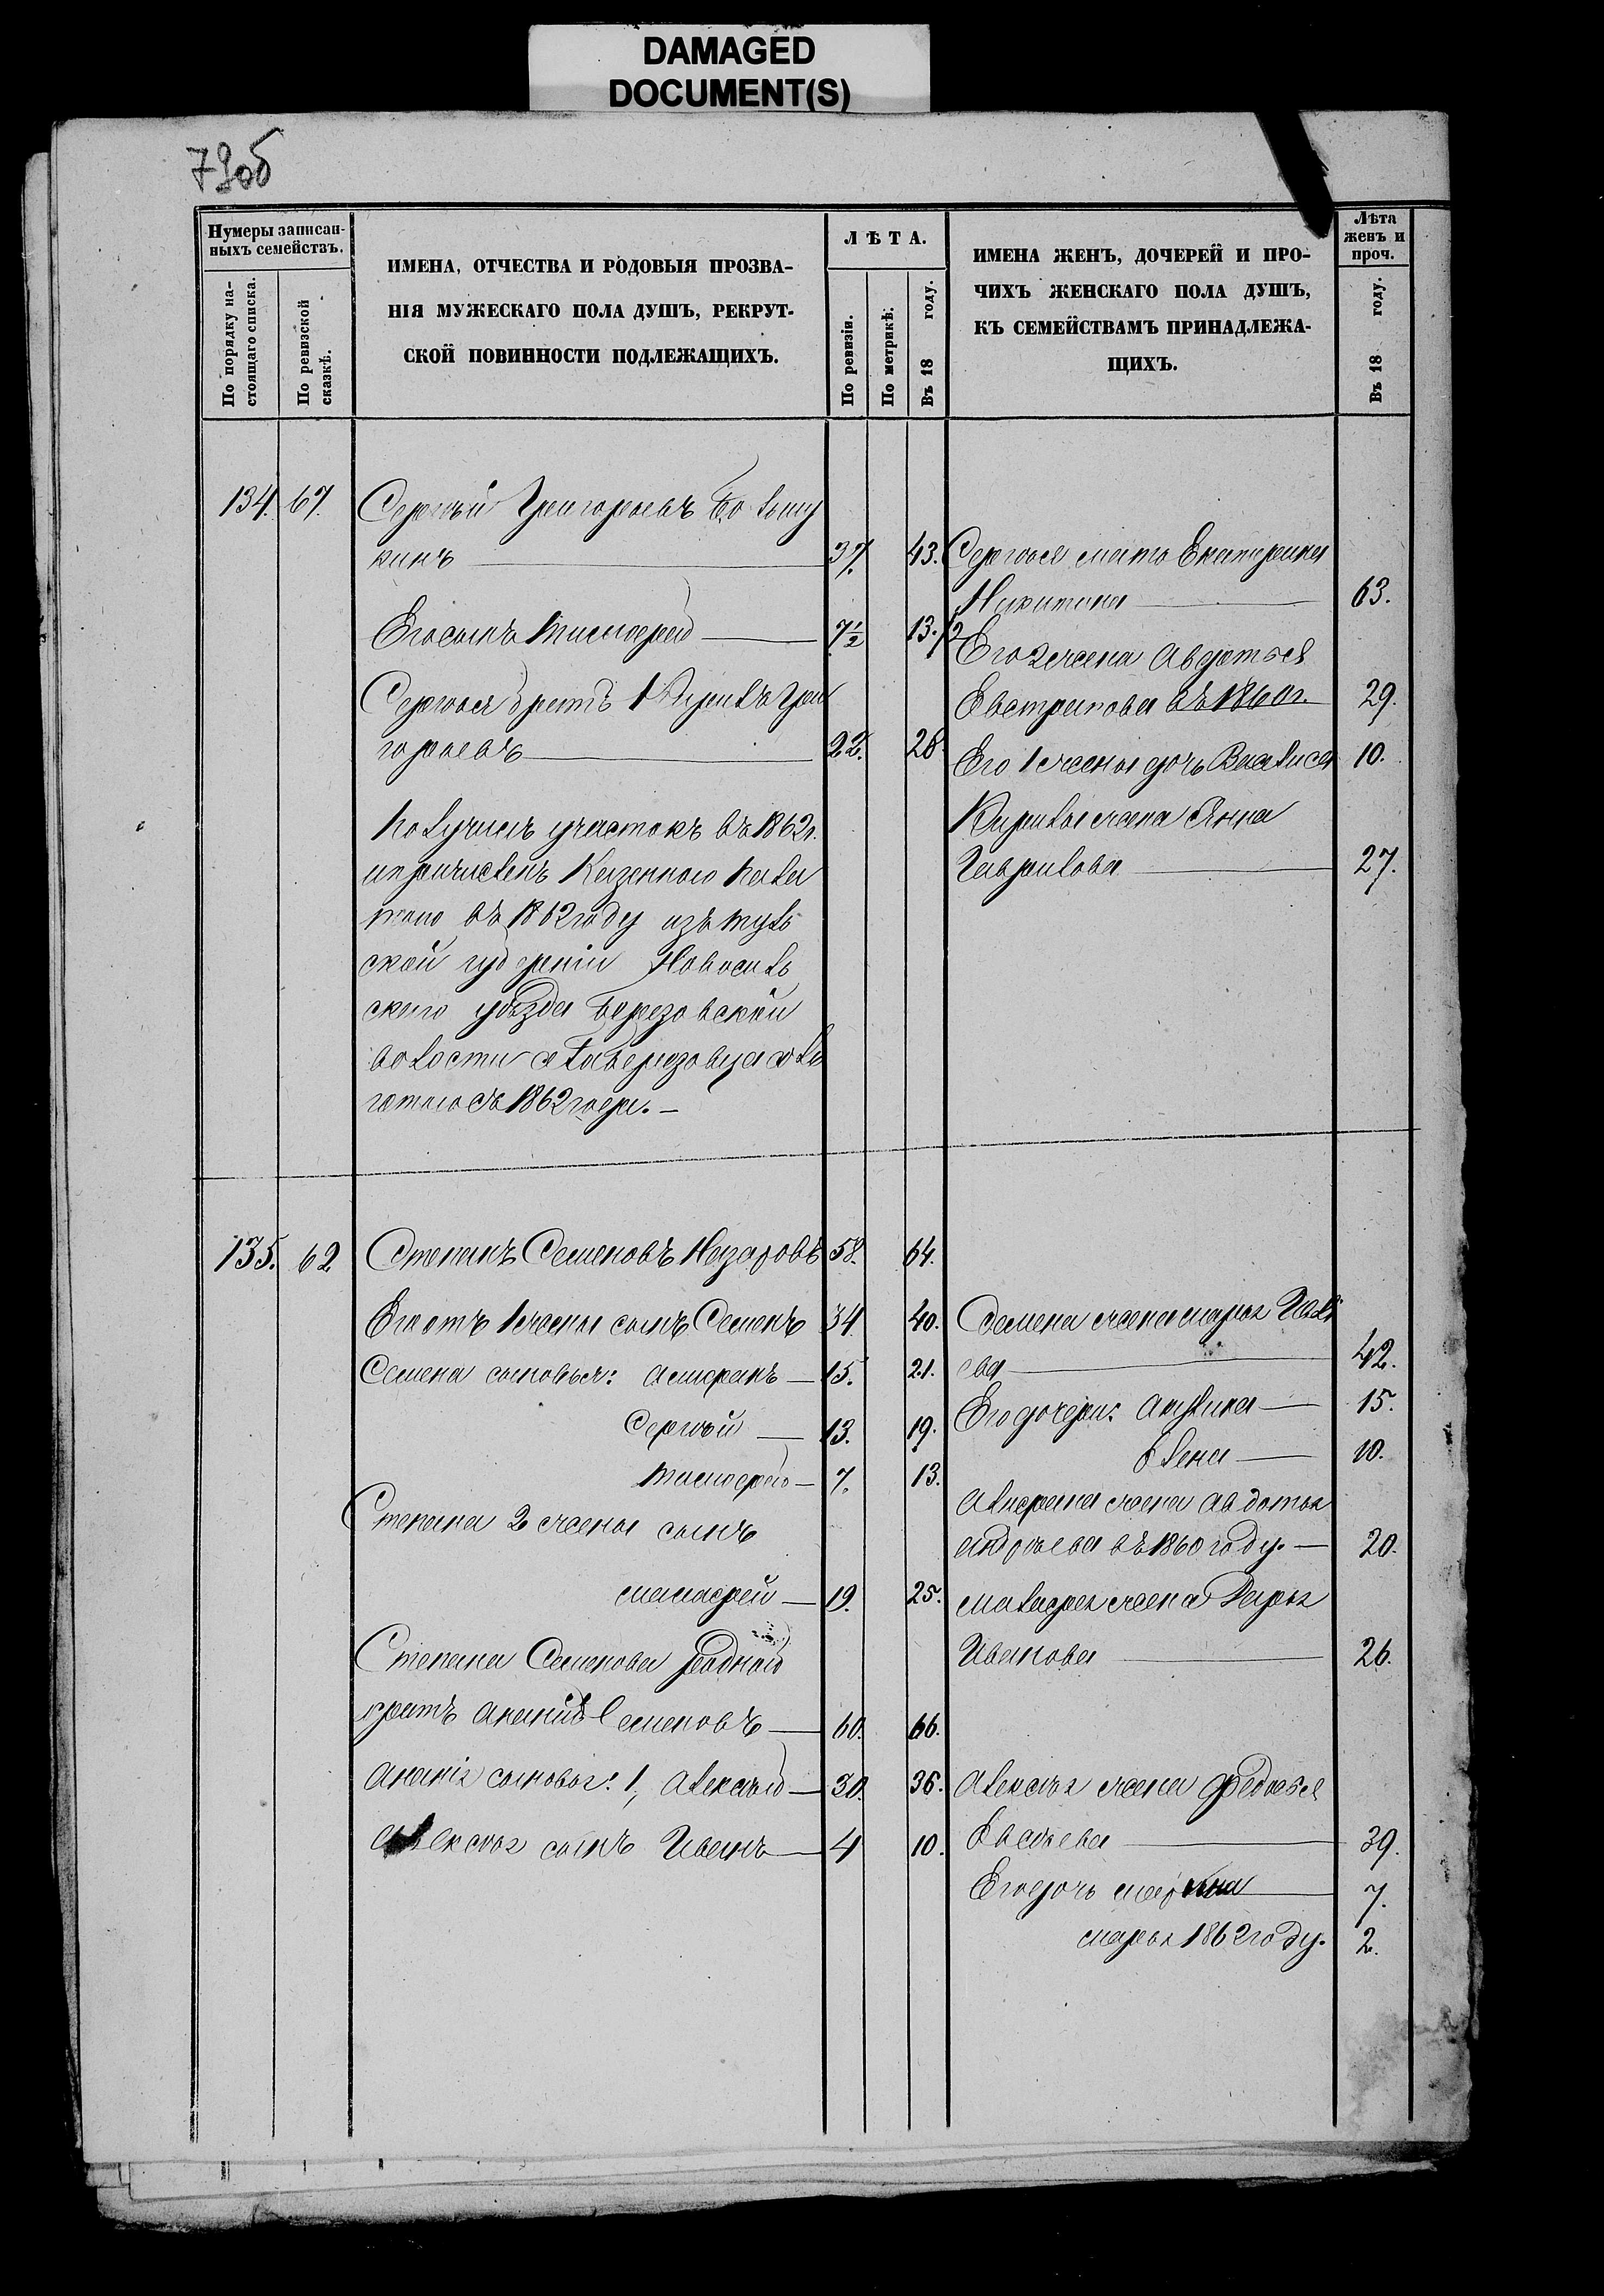 DAMAGED
DOCUMENT(S)
79об
Нумеры записан-
ныхъ семействъ.
По порядку на-
стоящаго списка.
По ревизской
сказкѣ.
ИМЕНА, ОТЧЕСТВА И РОДОВЫЯ ПРОЗВА-
НІЯ МУЖЕСКАГО ПОЛА ДУШЪ, РЕКРУТ-
СКОЙ ПОВИННОСТИ ПОДЛЕЖАЩИХЪ.
ЛѢТА.
По ревизіи.
По метрикѣ.
Въ 18 году.
ИМЕНА ЖЕНЪ, ДОЧЕРЕЙ И ПРО-
ЧИХЪ ЖЕНСКАГО ПОЛА ДУШЪ,
КЪ СЕМЕЙСТВАМЪ ПРИНАДЛЕЖА-
ЩИХЪ.
Лѣта
женъ и
проч.
Въ 18 году.
134. 67. Сергѣй Григорьевъ
кинъ 37. 43.
Его сынъ Тимофей 7½ 13½
Сергѣя братъ Кирилъ Гри
горьевъ 22. 28.
Получилъ участокъ въ 1862г.
и причисленъ Казенною Пала
тою въ 1862 году изъ Туль
ской губерніи Новосиль
скаго уѣзда Березовской
волости
1862 года.
Сергѣя мать Екатерина
Никитина 63.
Его 2 жена Авдотья
Евстратова въ 1860г. 29.
Его 1 жены дочь Василиса 10.
Кирилы жена Анна
Гаврилова 27.
135. 62 Степанъ Семеновъ Назаровъ 58. 64.
Его отъ 1 жены сынъ Семенъ 34 40.
Семена сыновья: 15. 21.
Сергѣй 13. 19.
Тимофей 7. 13.
Степана 2 жены сынъ
19. 25.
Степана Семенова родной
братъ Ананій Семеновъ 60. 66.
Ананія сыновья: 1, Алексѣй 30. 36.
Алексѣя сынъ Иванъ 4 10.
Семена жена Марья
ева 42.
Его дочери: Акулина 15.
Елена 10.
жена Авдотья
Андреева въ 1860 году. 20.
жена Дарья
Иванова 26.
Алексѣя жена Федосья
39.
Его дочь 7.
Марья 1862 году. 2.